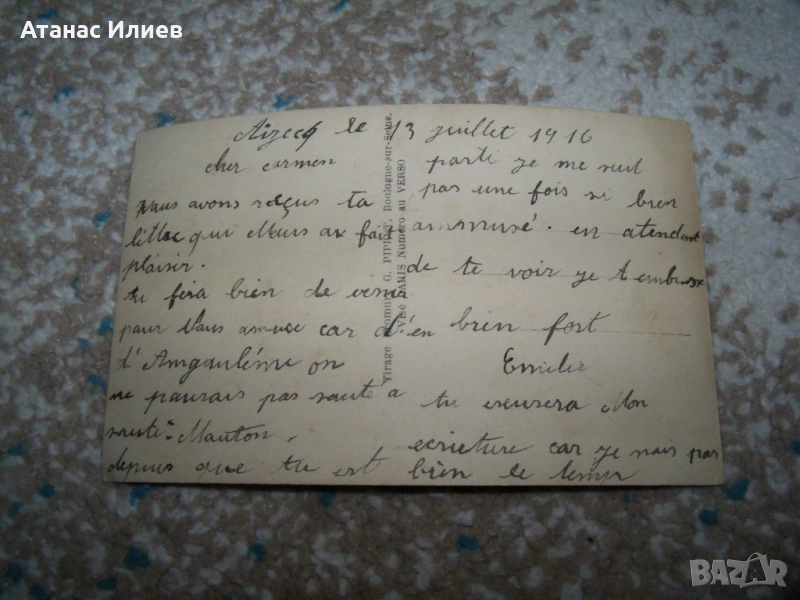 Атанас Илиев
Aizecq le 13 juillet 1916
cher carmen
Nous avons reçus ta
lettre qui Nous as fait
plaisir.
tu fera bien de venir
pour Nous amuse car d'en
d'Angouléme on
ne pourais pas saute a
saute-Mouton.
depuis que tu est
parti je me suit
pas une fois si bien
ammusé. en atendent
de te voir je t'embrasse
bien fort
Emilie
tu excusera Mon
ecriture car je nais pas
bien le temps
Virage G. Boulogne-sur-Seine.
Visé PARIS Numéro au VERSO
BAZAR